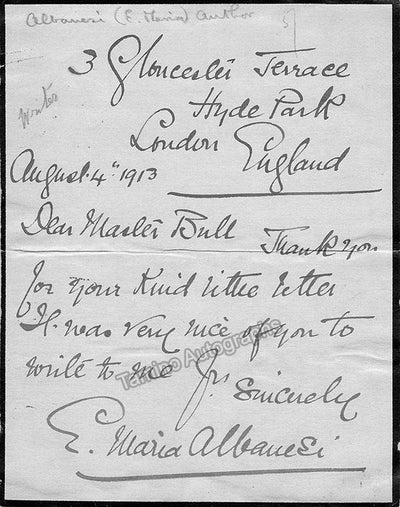 Albanesi (E. Maria) Author
3 Gloucester Terrace
Hyde Park
Writer
London
England
August 4th 1913
Dear Master Bull
Thank you
for your Kind little letter
It was very nice of you to
write to me
Tamino Autographs
Yrs Sincerely
E. Maria Albanesi